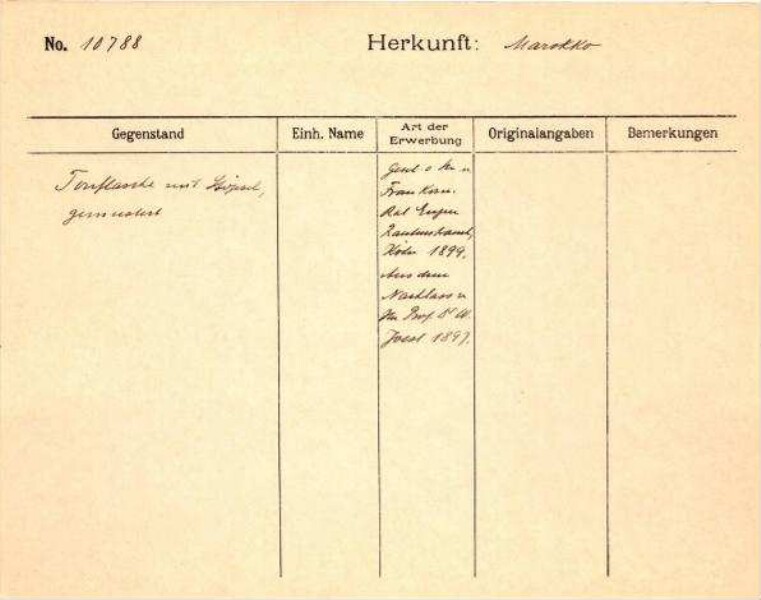 No. 10788
Herkunft: Marokko
Gegenstand
Einh. Name
Art der
Erwerbung
Originalangaben
Bemerkungen
Tonflasche mit Stöpsel,
gemustert
Gesch. v. Hrn u
Frau Kom.
Rat Eugen
Rautenstrauch,
Köln 1899.
Aus dem
Nachlass v.
Hn Prof. Dr W.
Joest 1897.